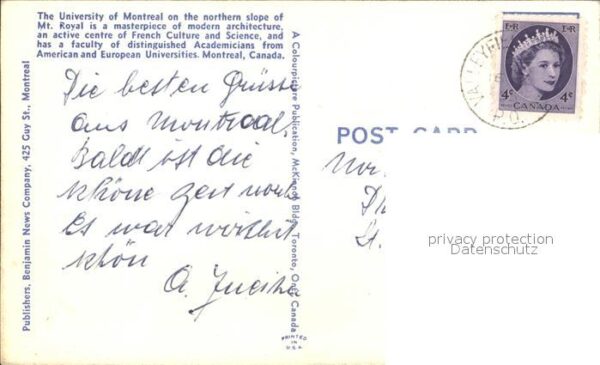 The University of Montreal on the northern slope of
Mt. Royal is a masterpiece of modern architecture,
an active centre of French Culture and Science, and
has a faculty of distinguished Academicians from
American and European Universities. Montreal, Canada.
Die besten Grüsse
aus Montreal.
Bald ist die
schöne Zeit
Es war wirklich
schön
Publishers, Benjamin News Company, 425 Guy St., Montreal
A Colourpicture Publication, McKinnon Bldg., Toronto, Ont., Canada
PRINTED
IN
U.S.A.
POST CARD
E II R E II R
4¢ CANADA 4¢
P.Q.
St.
privacy protection
Datenschutz